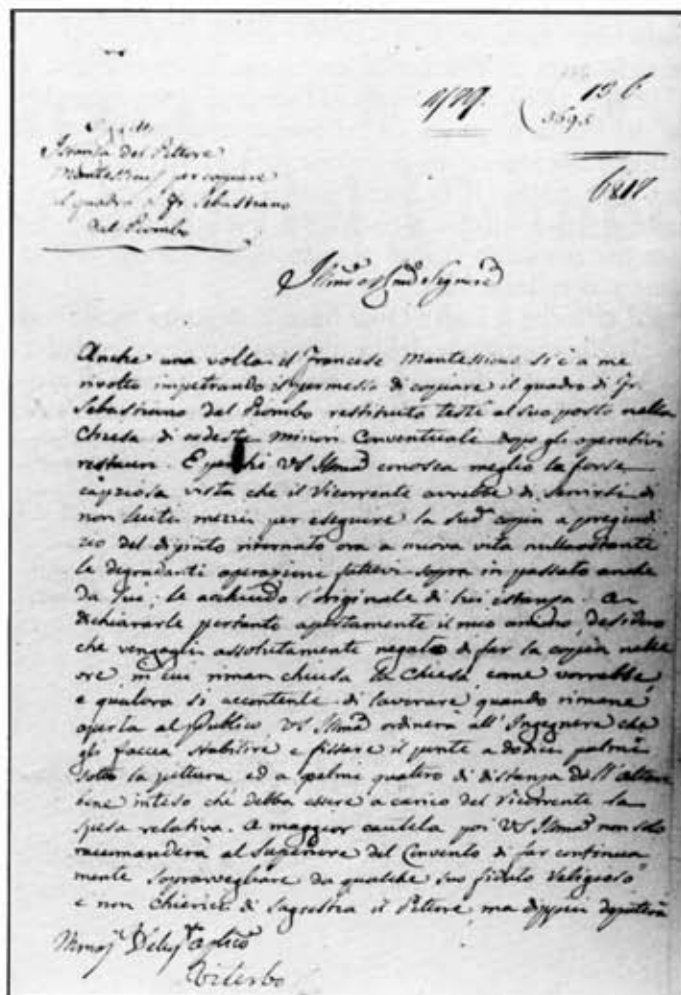 13 6
3695
6818
Oggetto
Istanza del Pittore
Montessuis per copiare
il quadro di Fr Sebastiano
del Piombo
Illmo e Signore
Anche una volta il Francese Montessuis si è a me
rivolto impetrando il permesso di copiare il quadro di Fr.
Sebastiano del Piombo restituito testè al suo posto nella
Chiesa di codesti Minori Conventuale dopo gli operativi
restauri. E perchè VS Illma conosca meglio la forse
capziosa vista che il ricorrente avrebbe di servirsi di
non leciti mezzi per eseguire la sud copia a pregiudi
zio del dipinto ritornato ora a nuova vita nullaostante
le degradanti operazioni fattevi sopra in passato anche
da lui, le acchiudo l'originale di lui istanza. A
dichiararle pertanto apertamente il mio animo, desidero
che vengagli assolutamente negato di far la copia nelle
ore in cui riman chiusa la Chiesa, come vorrebbe,
e qualora si accontente di lavorare quando rimane
aperta al Publico, VS Illma ordinerà all'Ingegnere che
gli faccia stabilire e fissare il ponte a dodici palmi
sotto la pittura ed a palmi quattro di distanza dall'altare
bene inteso che debba essere a carico del ricorrente la
spesa relativa. A maggior cautela poi VS Illma non solo
raccomanderà al Superiore del Convento di far continua
mente sopravegliare da qualche suo fidato Religioso
e non Chierici di Sagrestia il Pittore, ma dippiù deputerà
Monsj Deleg Aplico
Viterbo